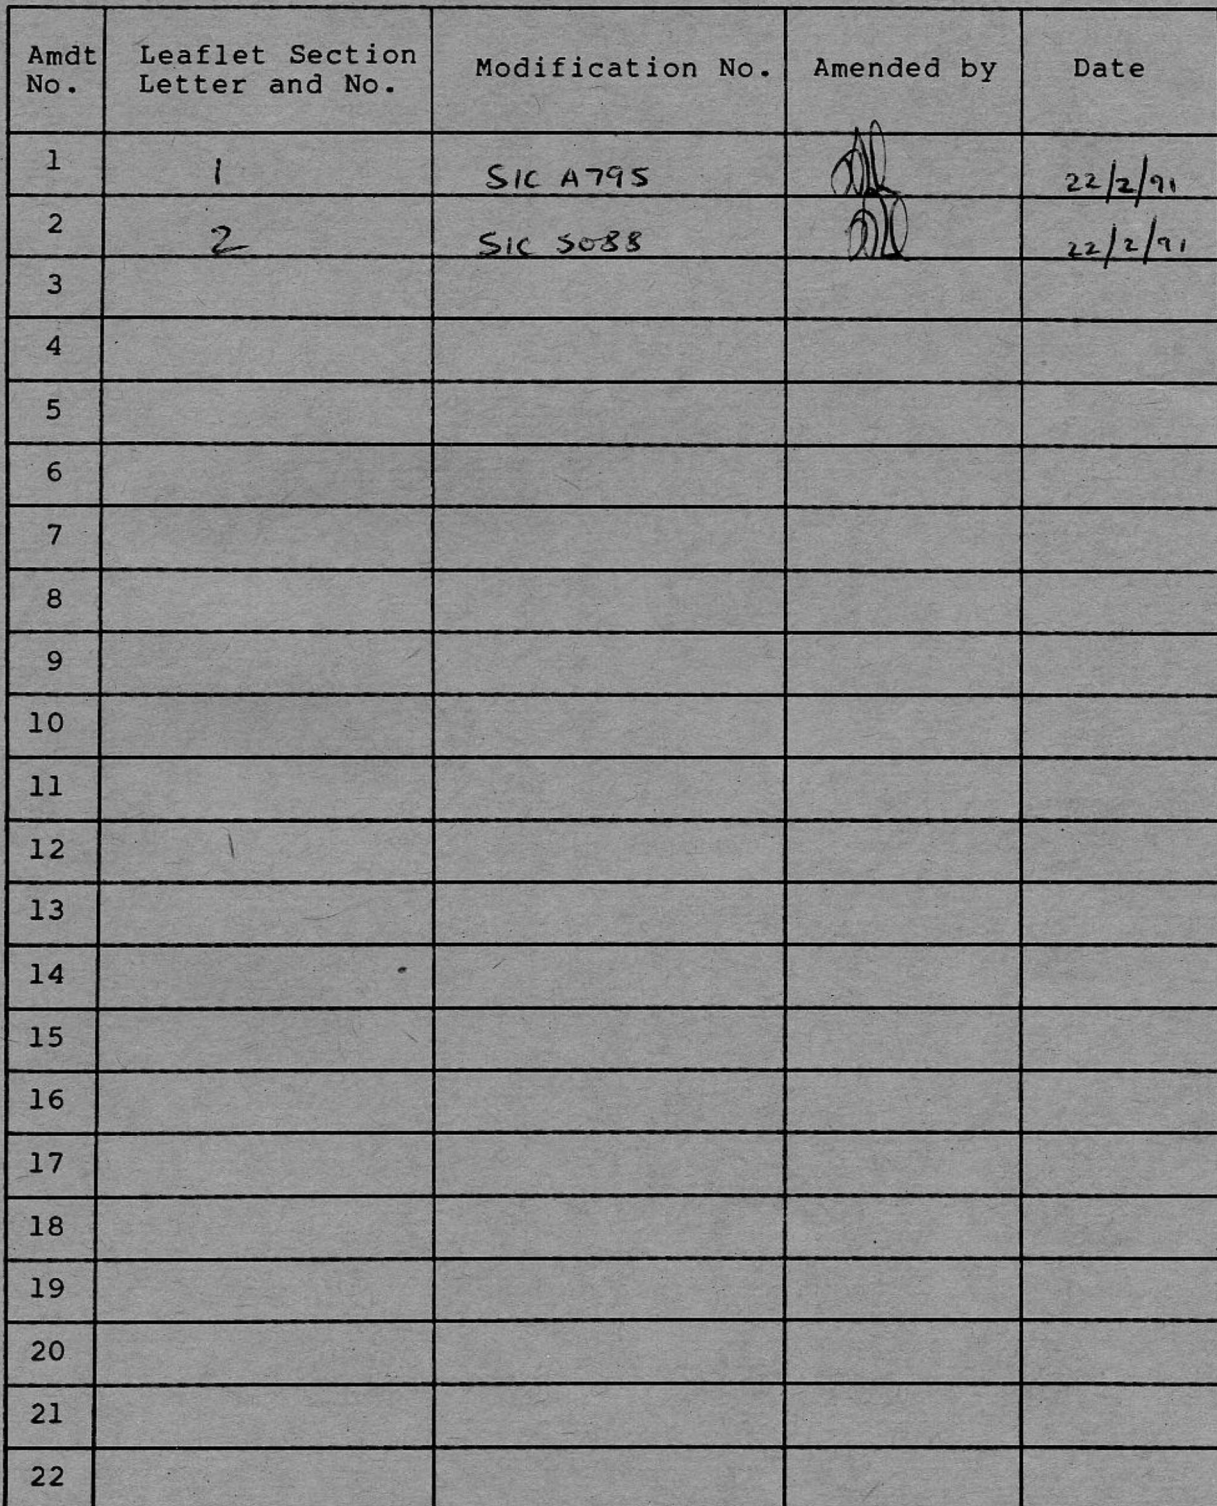 Amdt No. Leaflet Section Letter and No. Modification No. Amended by Date
1 1 SIC A795 22/2/91
2 2 SIC 5088 22/2/91
3
4
5
6
7
8
9
10
11
12
13
14
15
16
17
18
19
20
21
22